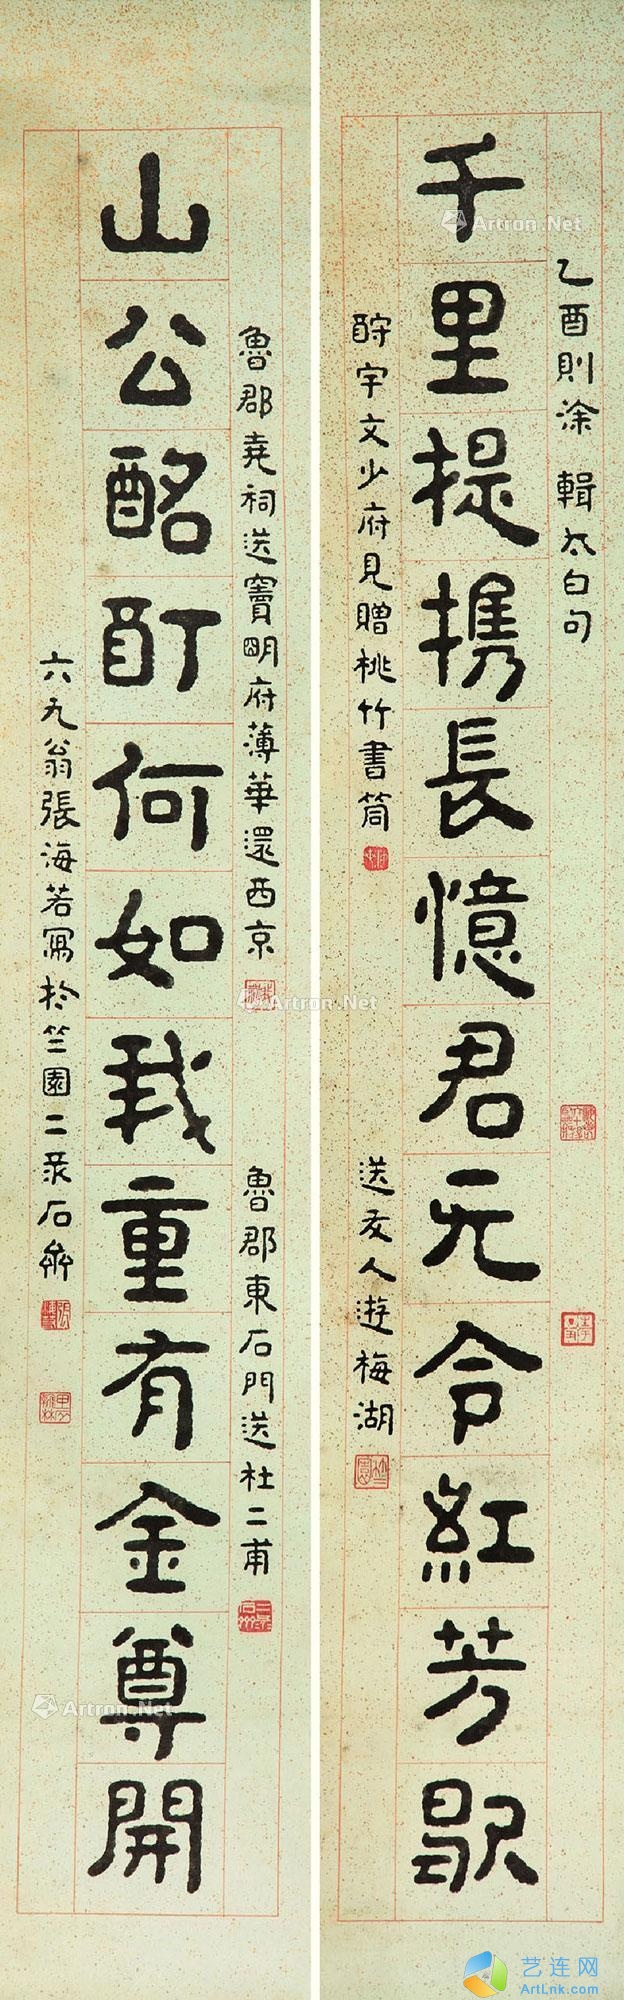 乙酉則涂 輯太白句
千里提攜長憶君无令紅芳歇
酧宇文少府見贈桃竹書筒
送友人遊梅湖
魯郡堯祠送竇明府薄華還西京
魯郡東石門送杜二甫
山公酩酊何如我重有金尊開
六九翁張海若寫於竺園二泉石
Artron.Net
Artron.Net
Artron.Net
Artron.Net
艺连网
ArtLnk.com